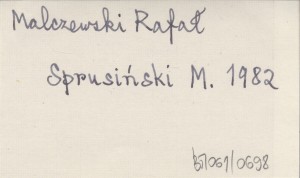 Malczewski Rafał
Sprusiński M. 1982
b7/061/0698